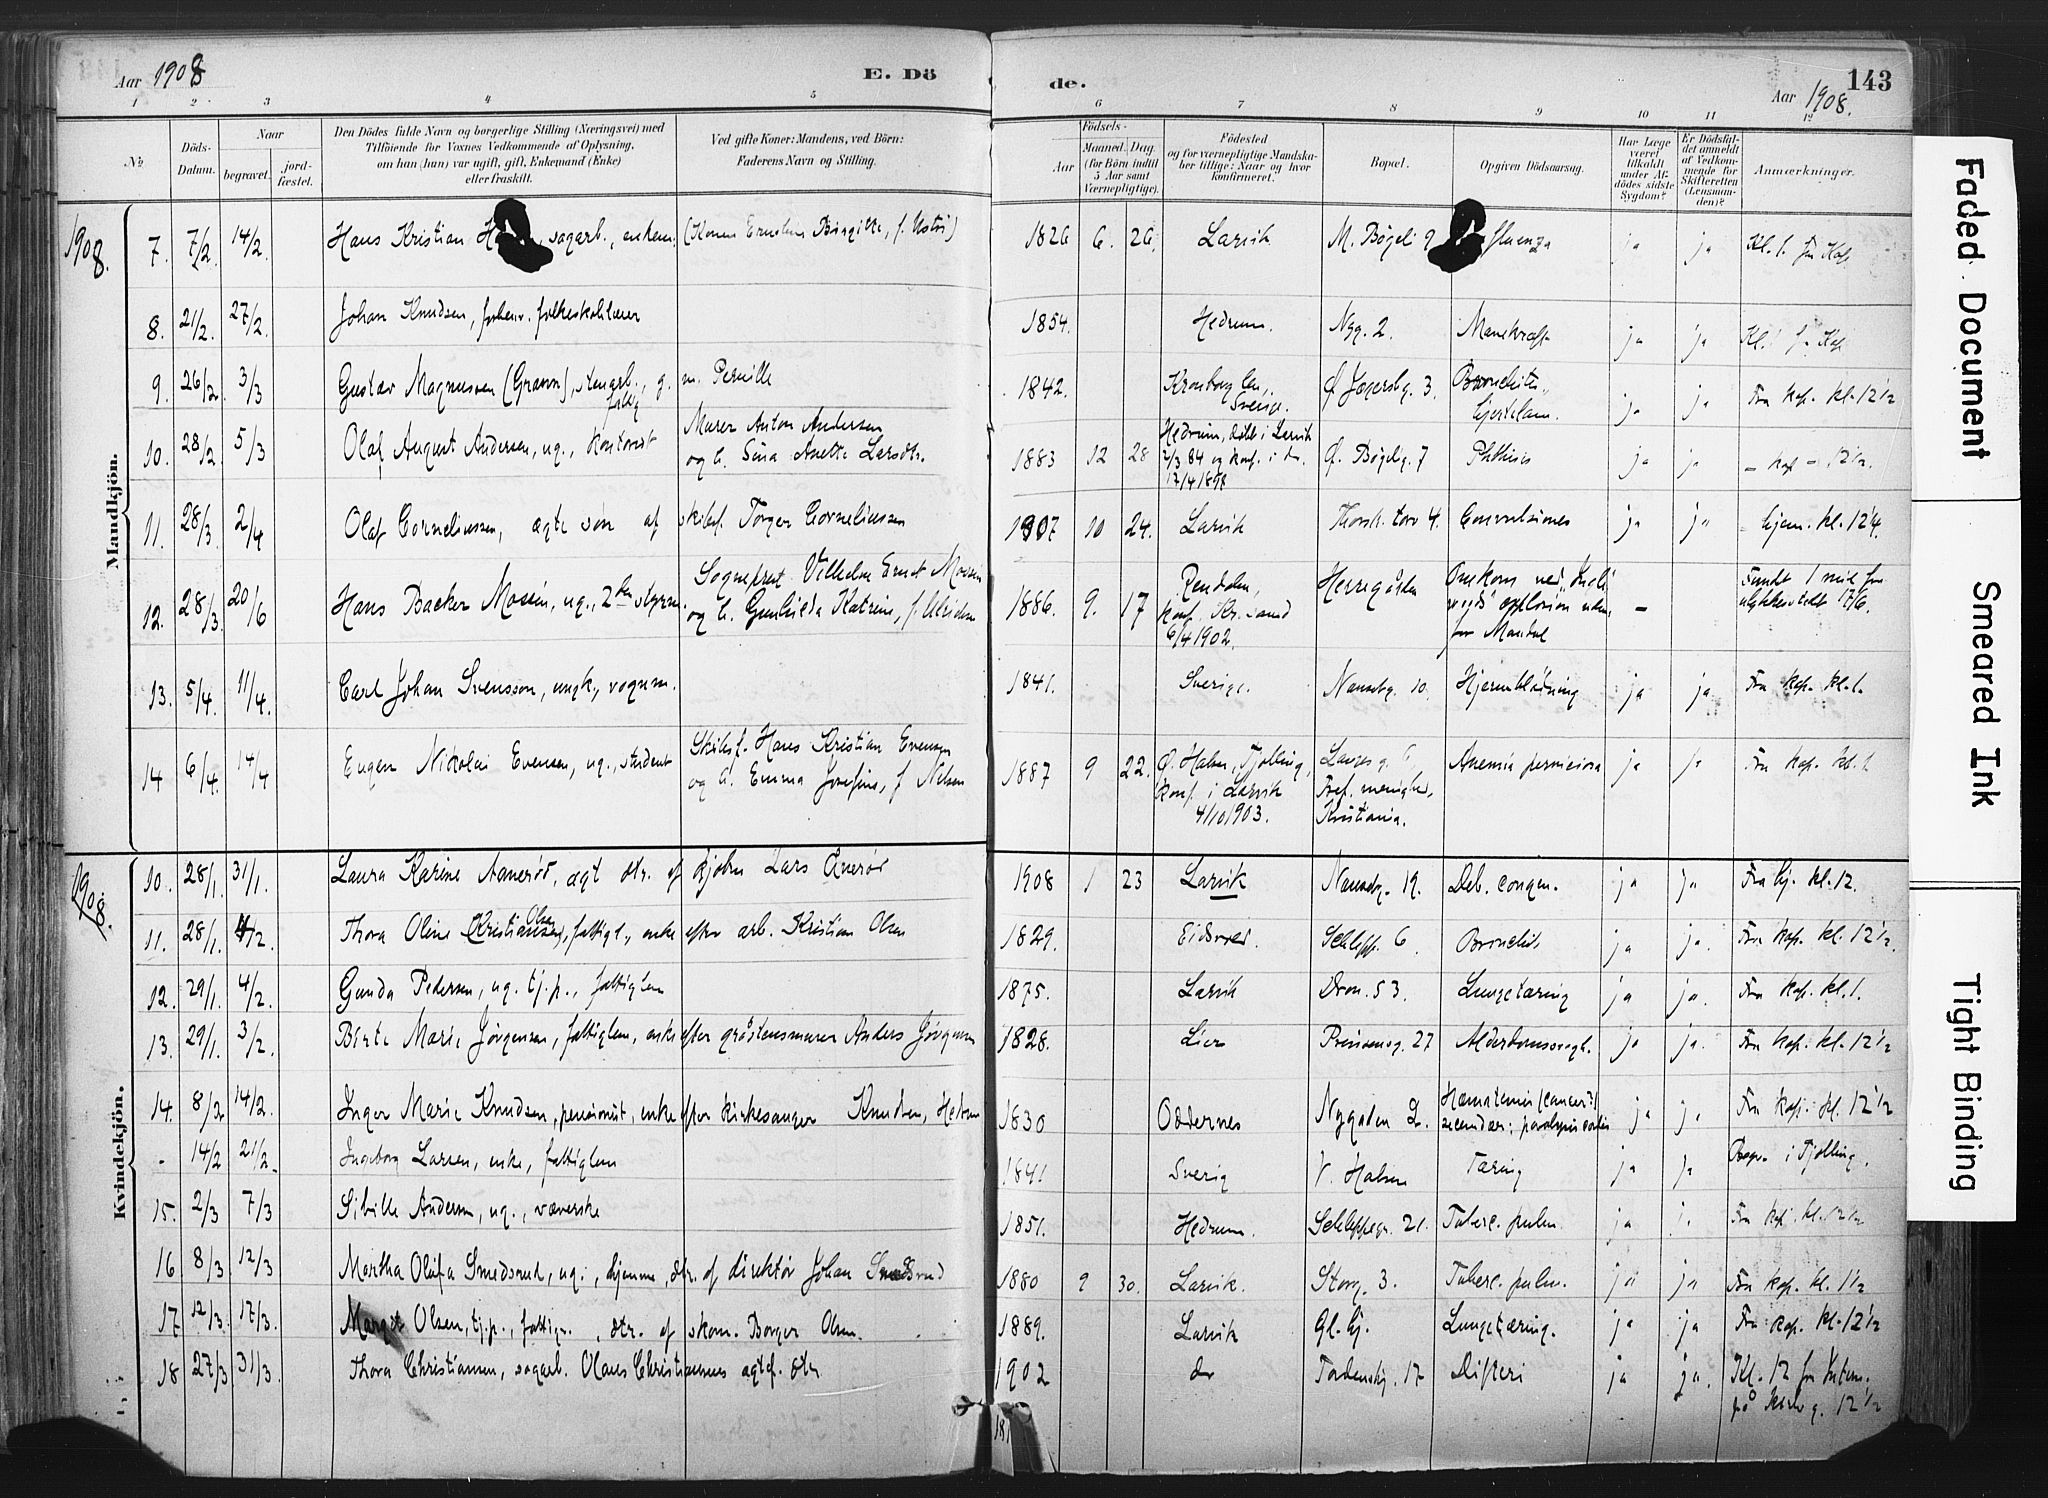 Aar 1908
E. Dö
de.
143
Aar 1908.
1 2 3 4 5 6 7 8 9 10 11 12
№
Döds-Datum.
Naar
begravet.
jord-fæstet.
Den Dödes fulde Navn og borgerlige Stilling (Næringsvei) med
Tilföiende for Voxnes Vedkommende af Oplysning,
om han (hun) var ugift, gift, Enkemand (Enke)
eller fraskilt.
Ved gifte Koner: Mandens, ved Börn:
Faderens Navn og Stilling.
Födsels-
Aar
Maaned. Dag.
(for Börn indtil
5 Aar samt
Værnepligtige).
Födested
og for værnepligtige Mandska-
ber tillige: Naar og hvor
konfirmeret.
Bopæl.
Opgiven Dödsaarsag.
Har Læge
været
tilkaldt
under Af-
dödes sidste
Sygdom?
Er Dödsfal-
det anmeldt
af Vedkom-
mende for
Skifteretten
(Lensman-
den)?
Anmærkninger.
1908.
Mandkjön.
7. 7/2. 14/2. Hans Kristian H , sagarb., enkem. (Konen Birgitte, f. ) 1826 6. 26. Larvik M. Bøgeli 9 fluenza ja ja Kl. 1. fra Kap
8. 21/2. 27/2. Johan Knudsen, forhenv. folkeskolelærer 1854. Hedrum. Nyg. 2. Marekræft ja ja Kl. 1 fr Kap
9. 26/2. 3/3 Gustav Magnussen (Grann), stenarb., g. m. Pernille 1842. Kronborg len, Sverige. Ø. Jegersbg. 3. Bronchitis, hjertelam. ja ja Fra kap. kl. 12 1/2
fattig
10. 28/2 5/3 Olaf August Andersen, ug., kontorist Murer Anton Andersen
og h. Sina Anette Larsdtr. 1883 12 28 Hedrum, døbt i Larvik
2/3 84 og konf. i do.
17/4 1898 Ø. Bøgelig. 7 Phthisis ja ja - kap - 12 1/2.
11. 28/3. 2/4 Olaf Corneliussen, ægte søn af skibsf. Torger Corneliussen 1907 10 24. Larvik Thorsk. torv 4. Convulsiones ja ja - hjem. kl. 12 1/4.
12. 28/3. 20/6 Hans Backer Mossin, ug., 2den styrm. Sogneprest Vilhelm Ernst Mossin
og h. Gunhilda Katrine, f. Ulrichsen 1886. 9. 17 Rendalen,
konf. Kr.sand
6/4 1902. Herregården Omkom ved
explosion uden
for Mandal - Fundet 1 mil fra
ulykkesstedet 17/6.
13. 5/4. 11/4. Carl Johan Svensson, ungk., vognm. 1841. Sverige. Nansetg. 10. Hjerneblødning ja ja Fra kap. kl. 1.
14 6/4. 14/4 Eugen Nikolai Evensen, ug., student Skibsf. Hans Kristian Evensen
og h. Emma Josefine, f. Nielsen 1887 9 22. Ø. Halsen, Tjølling,
konf. i Larvik
4/10 1903. Langes g. 6,
menighed,
Kristiania. Anemia perniciosa ja ja Fra kap. kl. 1
1908.
Kvindekjön.
10. 28/1. 31/1. Laura Karine Aanerød, ægt dtr. af Lars Anerød 1908 1 23 Larvik Nansetg. 19. Deb. congen. ja ja Fra hj. kl. 12.
11. 28/1. 4/2. Thora Oline Christiansen Olsen, fattigl., enke efter arb. Kristian Olsen 1829. Eidsvold. Schlepp. 6 Bronchit. ja ja. Fra kap. kl. 12 1/2.
12. 29/1. 4/2. Gunda Pedersen, ug. tj.p., fattiglem 1875. Larvik Dron. 53. Lungetæring ja ja. Fra kap. kl. 1.
13. 29/1. 3/2. Birte Marie Jørgensen, fattiglem, enke efter gråstensmurer Anders Jørgensen 1828. Lier Prinseng. 27 Alderdomssvagh. ja ja. Fra kap. kl. 12 1/2
14. 8/2 14/2. Inger Marie Knudsen, pensionist, enke efter kirkesanger Knudsen, Hedrum 1830 Oddernes Nygaden 2. Hæmatemesis (cancer?)
secundær: paralysis cordis ja ja Fra kap. kl. 12 1/2
- 14/2 21/2. Ingeborg Larsen, enke, fattiglem 1841 Sverig V. Halsen Tæring ja ja Begr. i Tjølling.
15. 2/3 7/3 Sibille Andersen, ug., væverske 1851. Hedrum. Schleppegr. 21. Tuberc. pulm. ja ja Fra kap. kl. 12 1/2
16 8/3 12/3 Martha Olufa Smedsrud, ug., hjemme, dtr. af direktør Johan Smedsrud 1880 9 30. Larvik. Storg. 3. Tuberc. pulm. ja ja Fra kap. kl. 1 1/2
17 12/3. 17/3. Margit Olsen, tj.p., fattigv., dtr. af skom. Borger Olsen. 1889. Larvik Gl. hj. Lungetæring. ja ja Fra kap. kl. 12 1/2
18 27/3 31/3. Thora Christiansen, sagarb. Olaus Christiansens ægtef. dtr 1902 do Tordenskj. 17 Difteri ja ja. Kl. 12 fra
på Kirkeg. 12 1/2
181
Faded Document
Smeared Ink
Tight Binding